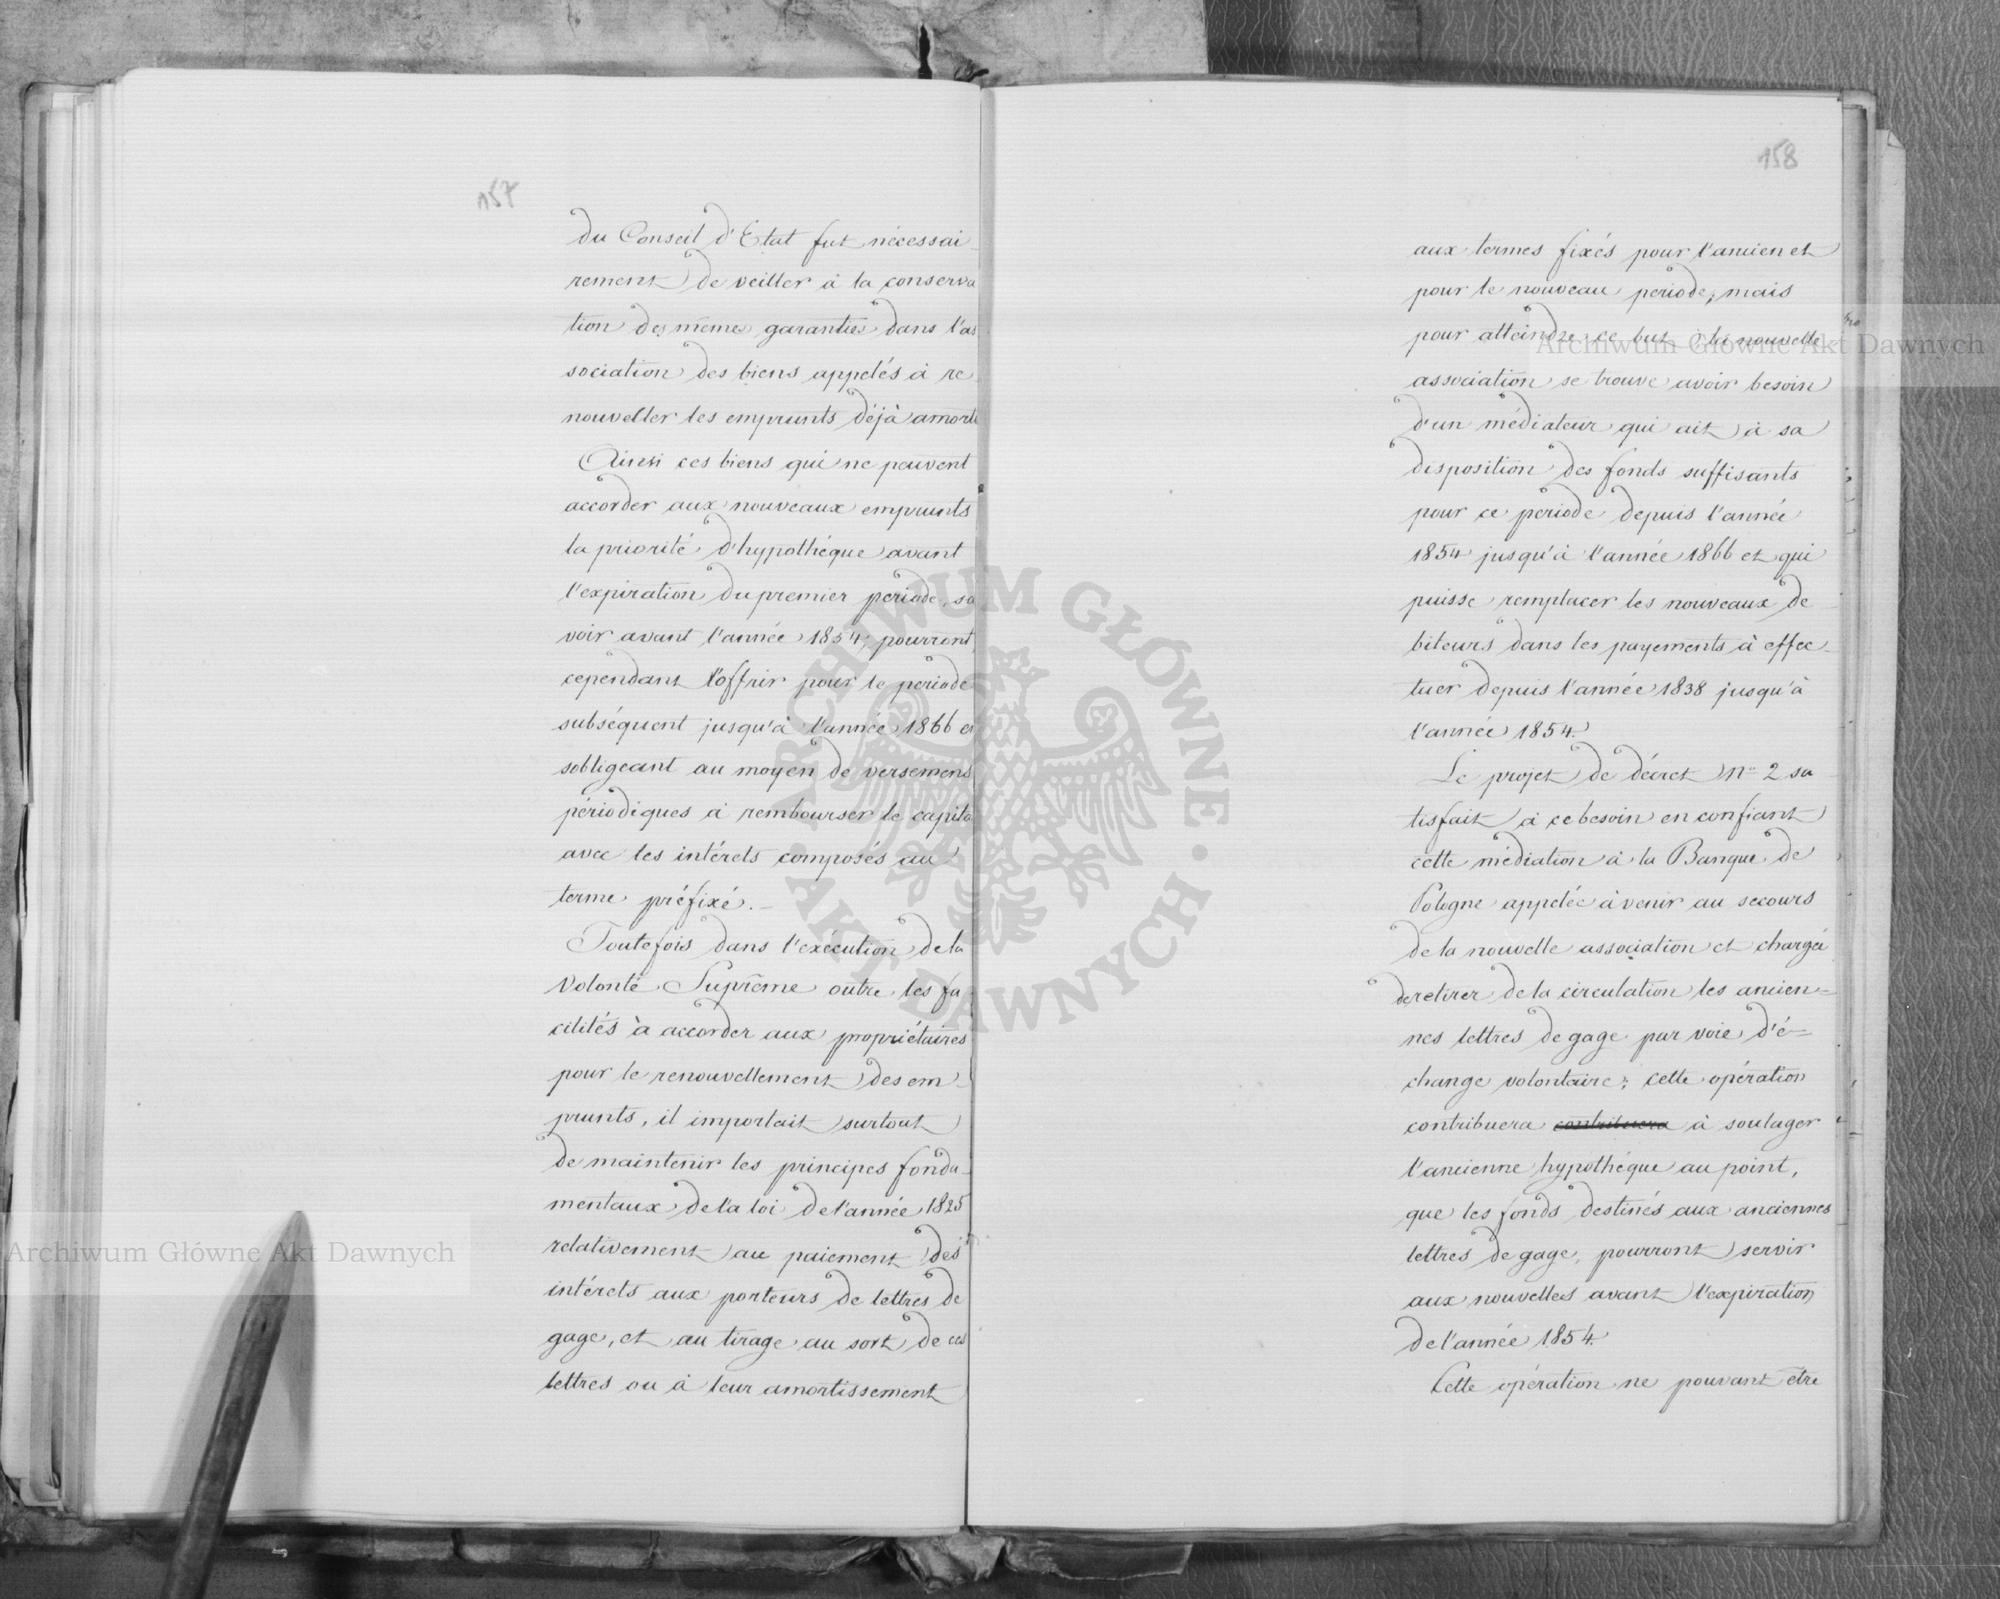 157
du Conseil d'Etat fut nécessai
rement de veiller à la conserva
tion des mêmes garanties dans l'as
sociation des biens appelés à re
nouveller les emprunts déjà amorti
Ainsi ces biens qui ne peuvent
accorder aux nouveaux emprunts
la priorité d'hypothéque avant
l'expiration du premier periode, sa
voir avant l'année 1854, pourront
cependant l'offrir pour le periode
subséquent jusqu'à l'année 1866 en
sobligeant au moyen de versemens
périodiques à rembourser le capita
avec les intérets composés au
terme préfixé.
Toutefois dans l'exécution de la
Volonté Suprême outre les fa
cilités à accorder aux propriétaires
pour le renouvellement des em
prunts, il importait surtout
de maintenir les principes fonda
mentaux de la loi de l'année 1825
relativement au paiement des
intérets aux porteurs de lettres de
gage, et au tirage au sort de ces
lettres ou à leur amortissement
158
aux termes fixés pour l'ancien et
pour le nouveau periode, mais
pour atteindre ce but la nouvelle
association se trouve avoir besoin
d'un médiateur qui ait à sa
disposition des fonds suffisants
pour ce periode depuis l'année
1854 jusqu'à l'année 1866 et qui
puisse remplacer les nouveaux de
biteurs dans les payements à effec
tuer depuis l'année 1838 jusqu'à
l'année 1854.
Le projet de décret No 2 sa
tisfait à ce besoin en confiant
cette médiation à la Banque de
Pologne appelée à venir au secours
de la nouvelle association et chargée
de retirer de la circulation les ancien=
nes lettres de gage par voie d'é=
change volontaire; cette opération
contribuera contribuera à soulager
l'ancienne hypothéque au point,
que les fonds destinés aux anciennes
lettres de gage, pourront servir
aux nouvelles avant l'expiration
de l'année 1854.
Cette opération ne pouvant etre
Archiwum Główne Akt Dawnych
Archiwum Główne Akt Dawnych
ARCHIWUM GŁÓWNE
AKT DAWNYCH